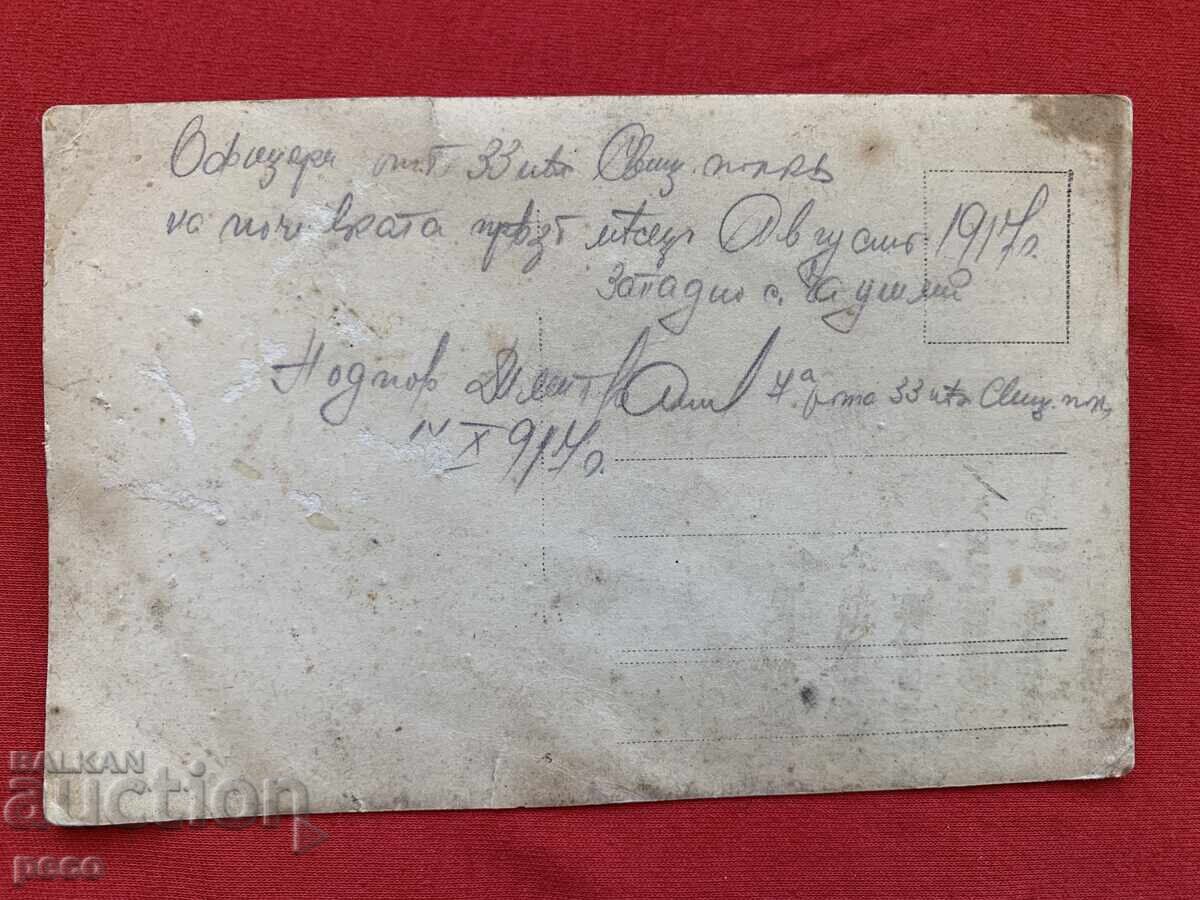 Офицери отъ 33 ий Свищ. полкъ
на почивката презъ месецъ Августъ 1917 г.
Западно с. Чаушли
Подпор. Димитъ 7а рота 33 ий Свищ. полкъ
IV X 917 г.
BALKAN
auction
peco